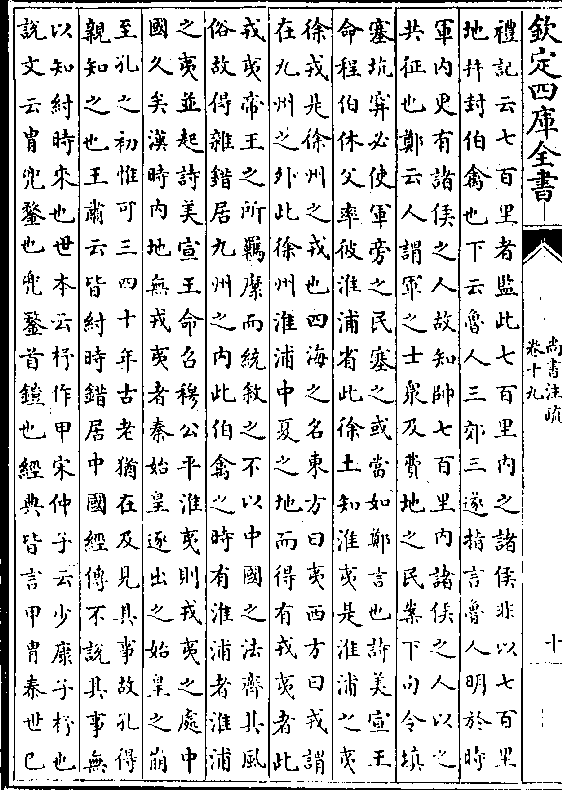 欽定四庫全書
尚書注疏
卷十九
十
禮記云七百里者監此七百里內之諸侯非以七百里
地幷封伯禽也下云魯人三郊三遂指言魯人明於時
軍內更有諸侯之人故知帥七百里內諸侯之人以之
共征也鄭云人謂軍之士衆及費地之民案下句令填
塞坑穽必使軍旁之民塞之或當如鄭言也詩美宣王
命程伯休父率彼淮浦省此徐土知淮夷是淮浦之夷
徐戎是徐州之戎也四海之名東方曰夷西方曰戎謂
在九州之外此徐州淮浦中夏之地而得有戎夷者此
戎夷帝王之所羈縻而統敘之不以中國之法齊其風
俗故得雜錯居九州之內此伯禽之時有淮浦者淮浦
之夷並起詩美宣王命召穆公平淮夷則戎夷之處中
國久矣漢時內地無戎夷者秦始皇逐出之始皇之崩
至孔之初惟可三四十年古老猶在及見其事故孔得
親知之也王肅云皆紂時錯居中國經傳不說其事無
以知紂時來也世本云杼作甲宋仲子云少康子杼也
說文云胄兜鍪也兜鍪首鎧也經典皆言甲胄秦世已